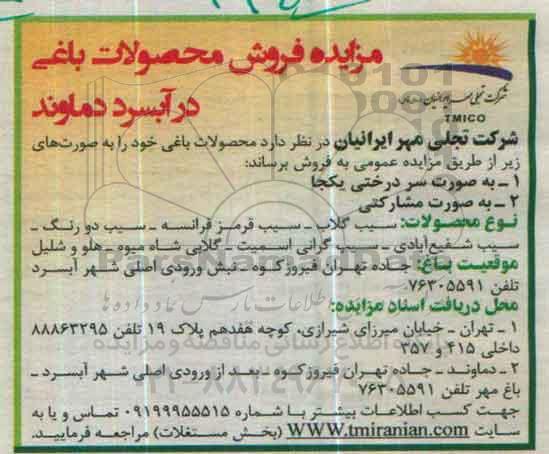 مزایده فروش محصولات باغی
در آبسرد دماوند
TMICO
شرکت تجلی مهر ایرانیان در نظر دارد محصولات باغی خود را به صورت‌های
زیر از طریق مزایده عمومی به فروش برساند:
۱ ـ به صورت سر درختی یکجا
۲ ـ به صورت مشارکتی
نوع محصولات: سیب گلاب ـ سیب قرمز فرانسه ـ سیب دو رنگ ـ
سیب شفیع‌آبادی ـ سیب گرانی اسمیت ـ گلابی شاه میوه ـ هلو و شلیل
موقعیت باغ: جاده تهران فیروزکوه ـ نبش ورودی اصلی شهر آبسرد
تلفن ۷۶۳۰۵۵۹۱
محل دریافت اسناد مزایده:
۱ ـ تهران ـ خیابان میرزای شیرازی، کوچه هفدهم پلاک ۱۹ تلفن ۸۸۸۶۳۲۹۵
داخلی ۴۱۵ و ۳۵۷
۲ ـ دماوند ـ جاده تهران فیروزکوه ـ بعد از ورودی اصلی شهر آبسرد ـ
باغ مهر تلفن ۷۶۳۰۵۵۹۱
جهت کسب اطلاعات بیشتر با شماره ۰۹۱۹۹۹۵۵۵۱۵ تماس و یا به
سایت WWW.tmiranian.com (بخش مستغلات) مراجعه فرمایید.